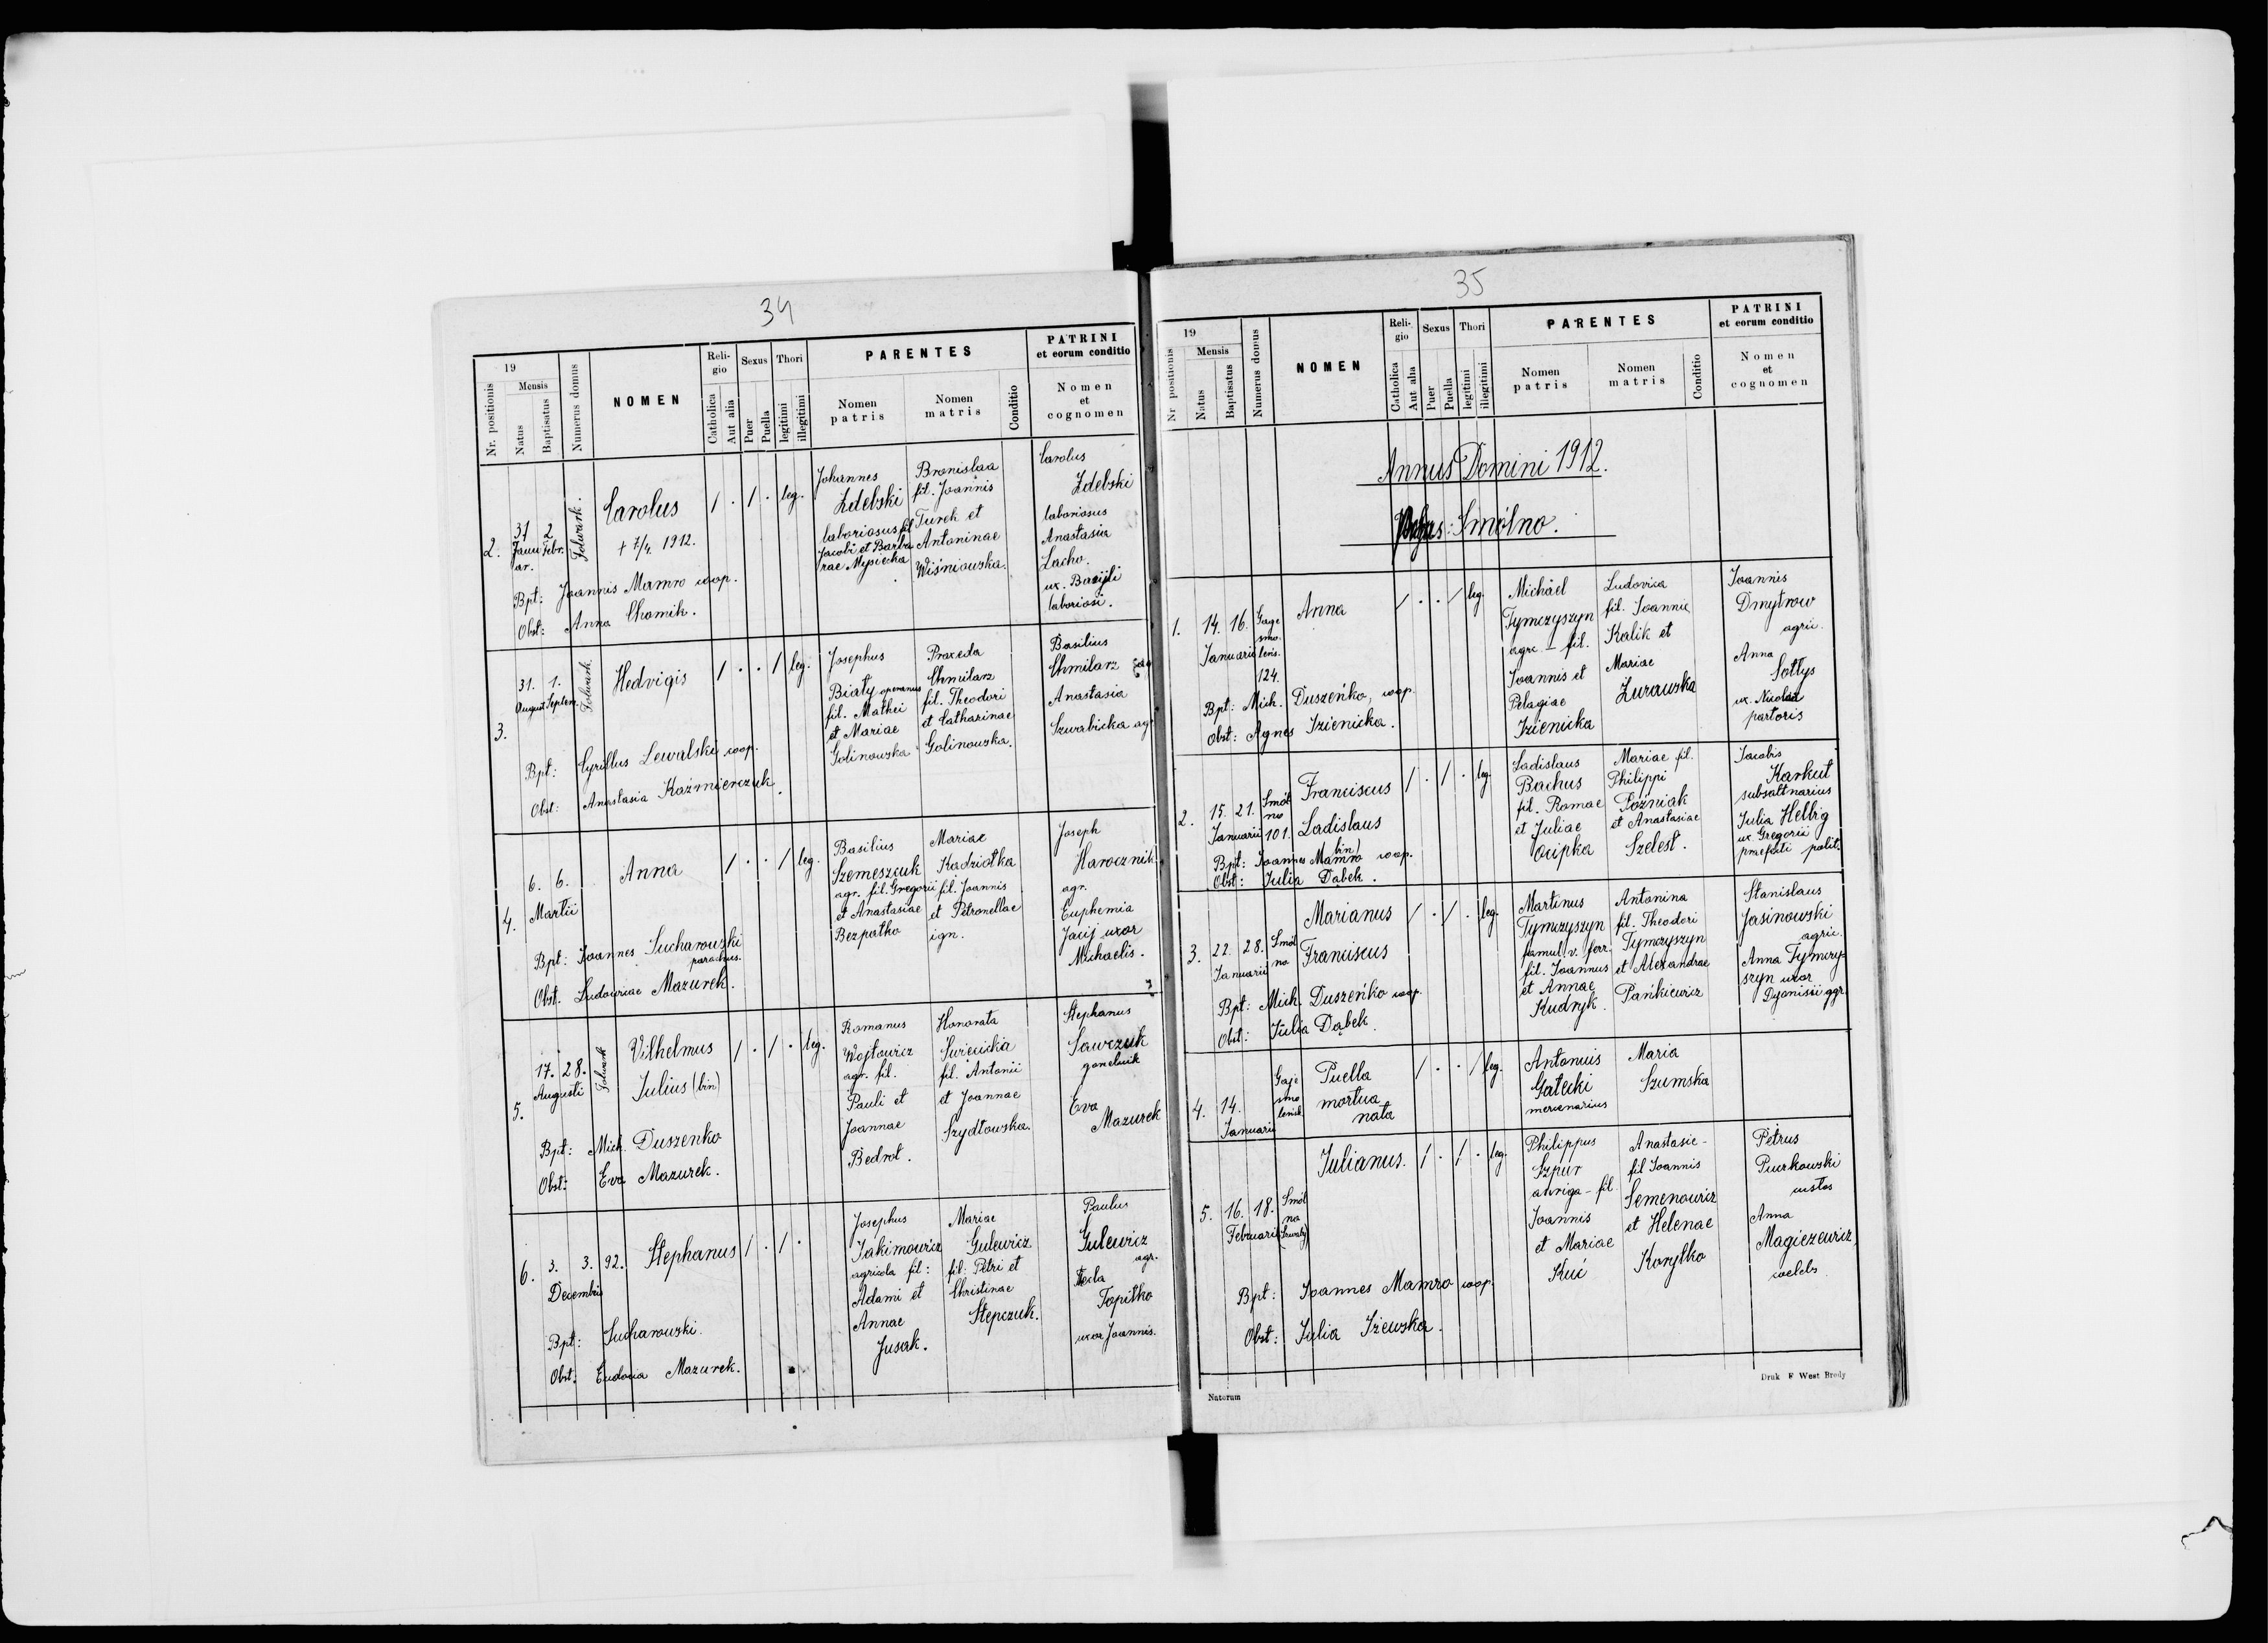 34
19
Nr. positionis
Mensis
Natus
Baptisatus
Numerus domus
NOMEN
Reli-
gio
Catholica
Aut alia
Sexus
Puer
Puella
Thori
legitimi
illegitimi
PARENTES
Nomen
patris
Nomen
matris
Conditio
PATRINI
et eorum conditio
Nomen
et
cognomen
2.
31 2
Janu Febr.
ar.
Folwark.
Carolus
+ 7/4. 1912.
/ . / . leg.
Johannes
Zdebski
laboriosus fil
Jacobi et Barba
rae Mysiecka
Bronislaa
fil. Joannis
Turek et
Antoninae
Wiśniowska.
Carolus
Zdebski
laboriosus
Anastasia
Lacho.
ux. Basyli
laboriosi.
Bpt: Joannis Mamro coop.
Obst: Anna Chomik.
3.
31. 1.
August Septem.
Folwark.
Hedvigis
/ . . / leg.
Josephus
Biały operarius
fil. Mathei
et Mariae
Golinowska
Praxeda
Chmilarz
fil. Theodori
et Catharinae
Golinowska.
Basilius
Chmilarz
Anastasia
Szwabicka agr
Bpt: Cyrillus Lewalski coop.
Obst: Anastasia Kaźmierczuk.
4.
6. 6.
Martii
Anna
/ . . / leg.
Basilius
Szemeszcuk
agr. fil. Gregorii
et Anastasiae
Bezpatko
Mariae
Kadziołka
fil. Joannis
et Petronellae
ign.
Joseph
Harocznik
agr.
Euphemia
Jacij uxor
Michaelis.
Bpt: Joannes Sucharowski
parochus.
Obst. Ludowicae Mazurek.
5.
17. 28.
Augusti
Folwark
Vilhelmus
Julius (bin)
/ . / . leg.
Romanus
Wojtowicz
agr. fil.
Pauli et
Joannae
Bedrot.
Honorata
Swiecicka
fil. Antonii
et Joannae
Szydłowska.
Stephanus
Sawczuk
gonelnik
Eva
Mazurek
Bpt: Mich. Duszenko
Obst: Eva Mazurek.
6.
3. 3. 92.
Decembris
Stephanus
/ . / .
Josephus
Jakimowicz
agricola fil:
Adami et
Annae
Jusak.
Mariae
Gulewicz
fil: Petri et
Christinae
Stepczuk.
Paulus
Gulewicz
agr.
Tecla
Topitko
uxor Joannis.
Bpt: Sucharowski.
Obst: Eudocia Mazurek.
35
19
Nr positionis
Mensis
Natus
Baptisatus
Numerus domus
NOMEN
Reli-
gio
Catholica
Aut alia
Sexus
Puer
Puella
Thori
legitimi
illegitimi
PARENTES
Nomen
patris
Nomen
matris
Conditio
PATRINI
et eorum conditio
Nomen
et
cognomen
Annus Domini 1912.
Smólno.
1.
14. 16.
Januarii
Gaje
smo.
lens.
124.
Anna
/ . . / leg.
Michäel
Tymczyszyn
agrc. – fil.
Joannis et
Pelagiae
Izienicka
Ludovica
fil. Joannis
Kalik et
Mariae
Żurawska
Joannis
Dmytrow
agric.
Anna
Sołtys
ux. Nicolai
partoris
Bpt: Mich. Duszeńko, coop.
Obst: Agnes Izienicka.
2.
15. 21.
Januarii
Smól
no
101.
Franciscus
Ladislaus
(bin)
/ . / . leg.
Ladislaus
Bachus
fil. Romae
et Juliae
Ocipka
Mariae fil.
Philippi
Poźniak
et Anastasiae
Szelest.
Jacobis
Karkut
subsaltnarius
Julia Hellrig
ux Gregorii
praefecti polit.
Bpt: Joannes Mamro coop.
Obst: Julia Dabek.
3.
22. 28.
Januarii
Smól
no
Marianus
Franciscus
/ . / . leg.
Martinus
Tymczyszyn
famul. v. ferr.
fil. Joannus
et Annae
Kudryk.
Antonina
fil. Theodori
Tymczyszyn
et Alexandrae
Pańkiewicz
Stanislaus
Jasinowski
agric.
Anna Tymczy-
szyn uxor
Dyonisii agr.
Bpt: Mich. Duszeńko coop.
Obst: Julia Dąbek.
4.
14.
Januarii
Gaje
smo
lensk.
Puella
mortua
nata
/ . . / leg.
Antonuis
Gałecki
mercenarius
Maria
Szumska
5.
16. 18.
Februarii
Smól
no
Julianus.
/ . / . leg.
Philippus
Szpur
auriga – fil.
Joannis
et Mariae
Kuć
Anastasie-
fil Joannis
Semenowicz
et Helenae
Korytko
Petrus
Piurkowski
custos
Anna
Magiezewicz,
coelebs
Bpt: Joannes Mamro coop.
Obst: Julia Iżewska.
Natorum
Druk F West Brody